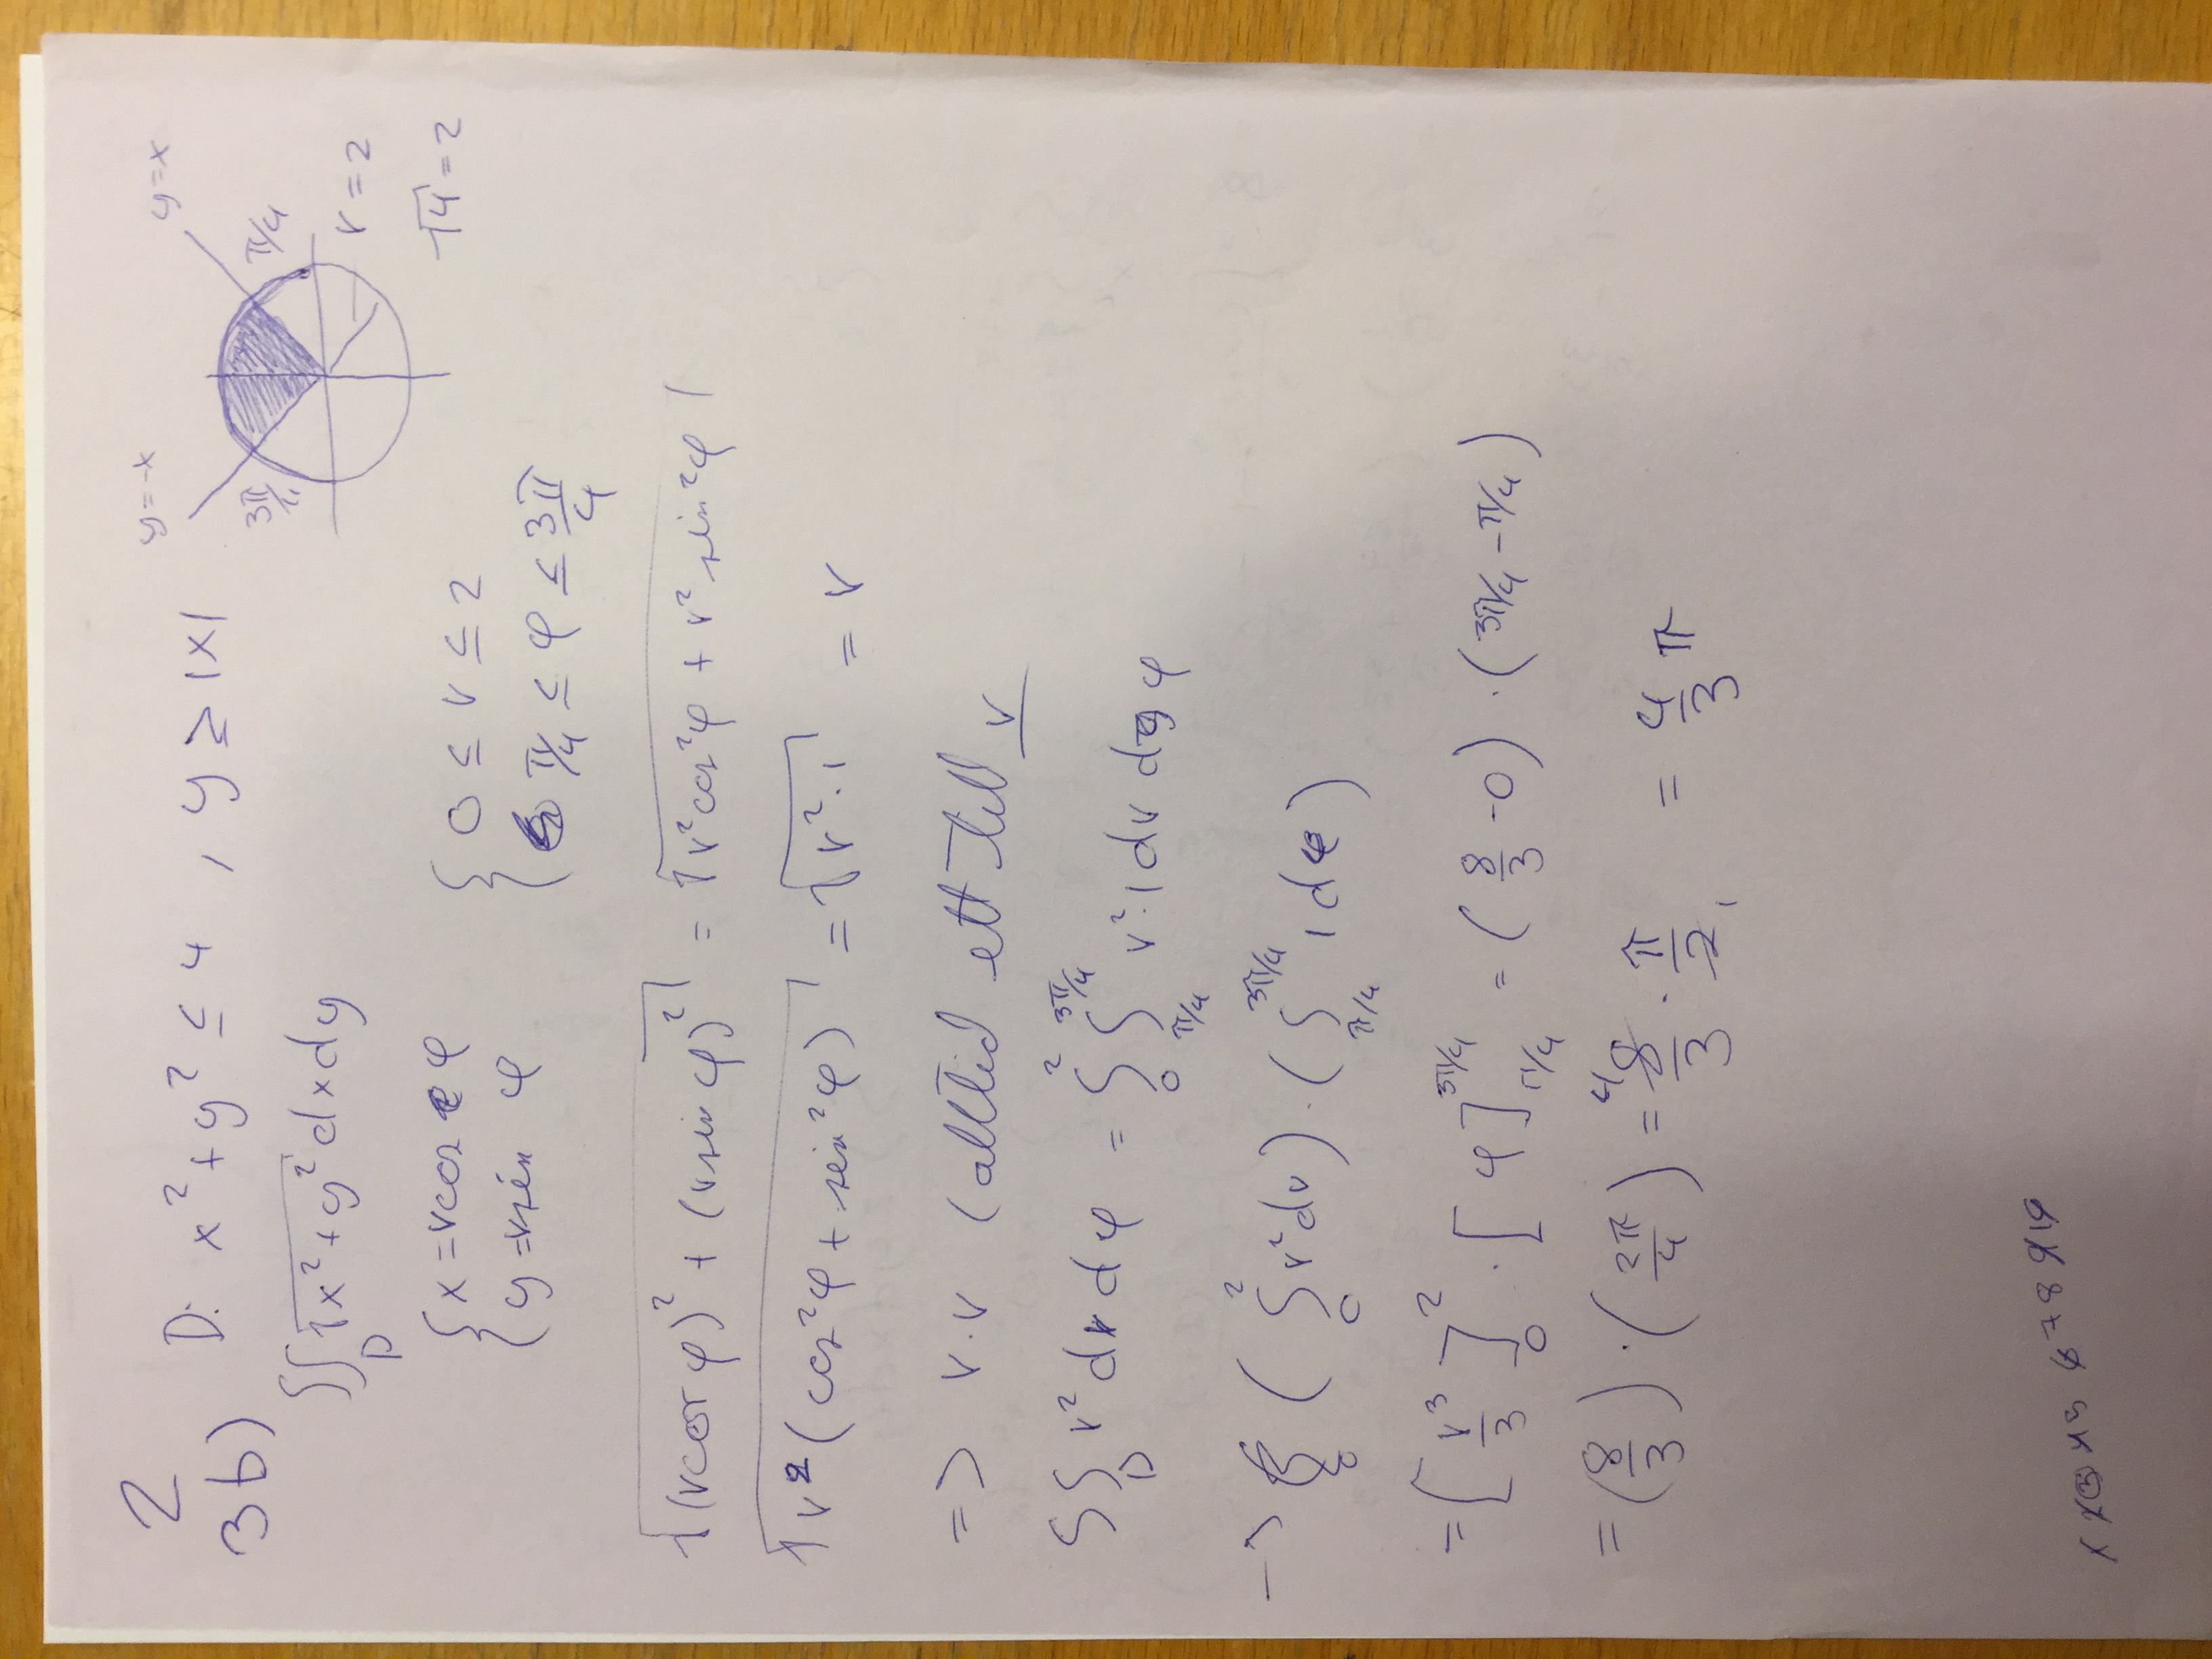 2
3b) D: x² + y² ≤ 4 , y ≥ |x|
y=-x y=x
3π/4 π/4
r = 2
√4 = 2
∬_D √(x²+y²) dxdy
{ x = r cos φ
{ y = r sin φ
{ 0 ≤ r ≤ 2
{ π/4 ≤ φ ≤ 3π/4
√((r cos φ)² + (r sin φ)²) = √(r² cos²φ + r² sin²φ)
√(r² (cos²φ + sin²φ)) = √(r²·1) = r
=> r·r (alltid ett till r
∬_D r² dr dφ = ∫_0^2 ∫_{π/4}^{3π/4} r²·1 dr dφ
-> ( ∫_0^2 r² dr ) · ( ∫_{π/4}^{3π/4} 1 dφ )
= [ r³/3 ]_0^2 · [ φ ]_{π/4}^{3π/4} = ( 8/3 - 0 ) · ( 3π/4 - π/4 )
= ( 8/3 ) · ( 2π/4 ) = 4 8/3 · π/2 1 = 4/3 π
6 7 8